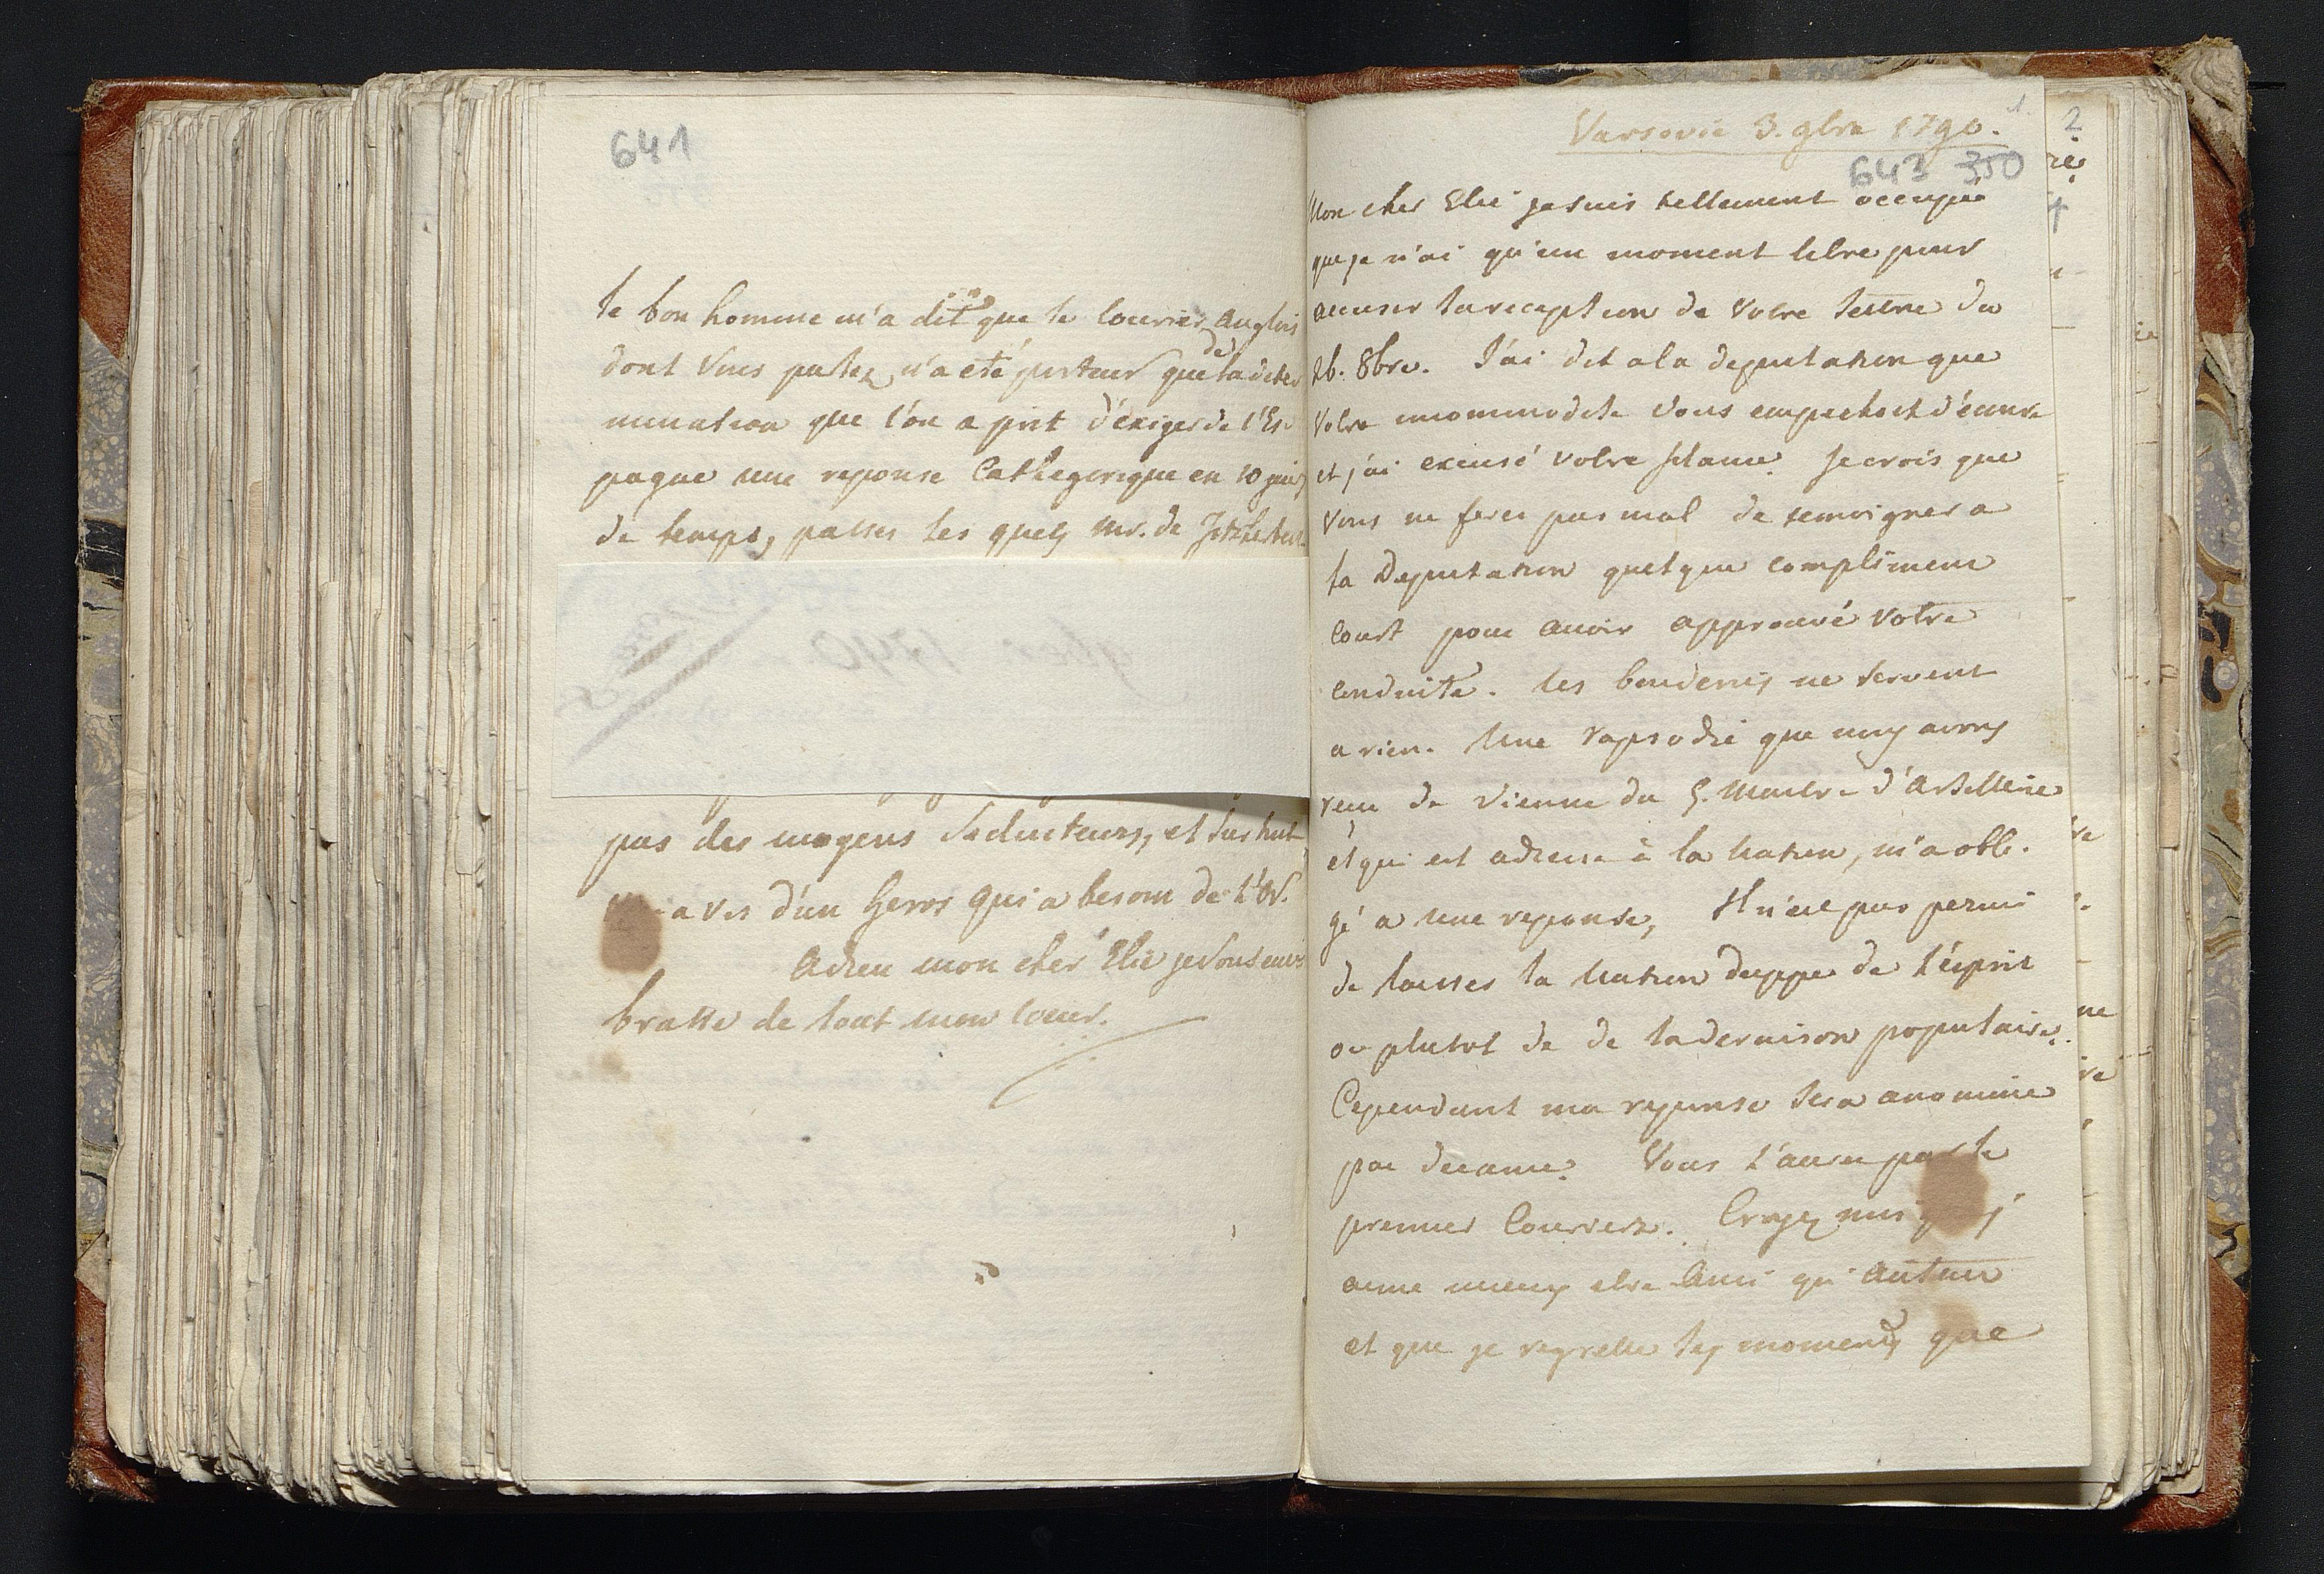 641
le bon homme m'a dit que le Courier Anglois
dont Vous parlez n'a eté porteur que de la deter
mination que l'on a prit d'exiger de l'Es-
pagne une reponse Cathegorique en 10 jours
de temps, passes les quels Mr. de Fitzherbert
pas des moyens Seducteurs, et sur tout
a vis d'un heros qui a besoin de l'Or.
Adieu mon cher Elie je Vous em
brasse de tout mon Coeur.
Varsovie 3. 9bre 1790.
1
643 350
Mon cher Elie je suis tellement occupé
que je n'ai qu'un moment libre pour
accuser la reception de Votre lettre du
26. 8bre. J'ai dit a la deputation que
Votre incommodite Vous empechoit d'ecrire
et j'ai excusé Votre silence. Je crois que
Vous ne feres pas mal de temoigner a
la Deputation quelque compliment
court pour avoir approuvé Votre
conduite. les bouderies ne servent
a rien. Une rapsodie que nous avons
reçu de Vienne du G. Maitre d'Artillerie
et qui est adresse à la Nation, m'a obli-
gé a une reponse, Il n'est pas permis
de laisser la Nation duppe de l'esprit
ou plutot de de la deraison populaire.
Cependant ma reponse sera anonime
par decence. Vous l'aurez par le
premier Courrier. Croyez moi j'
aime mieux etre Ami qu'Auteur
et que je regrette les moments que
2